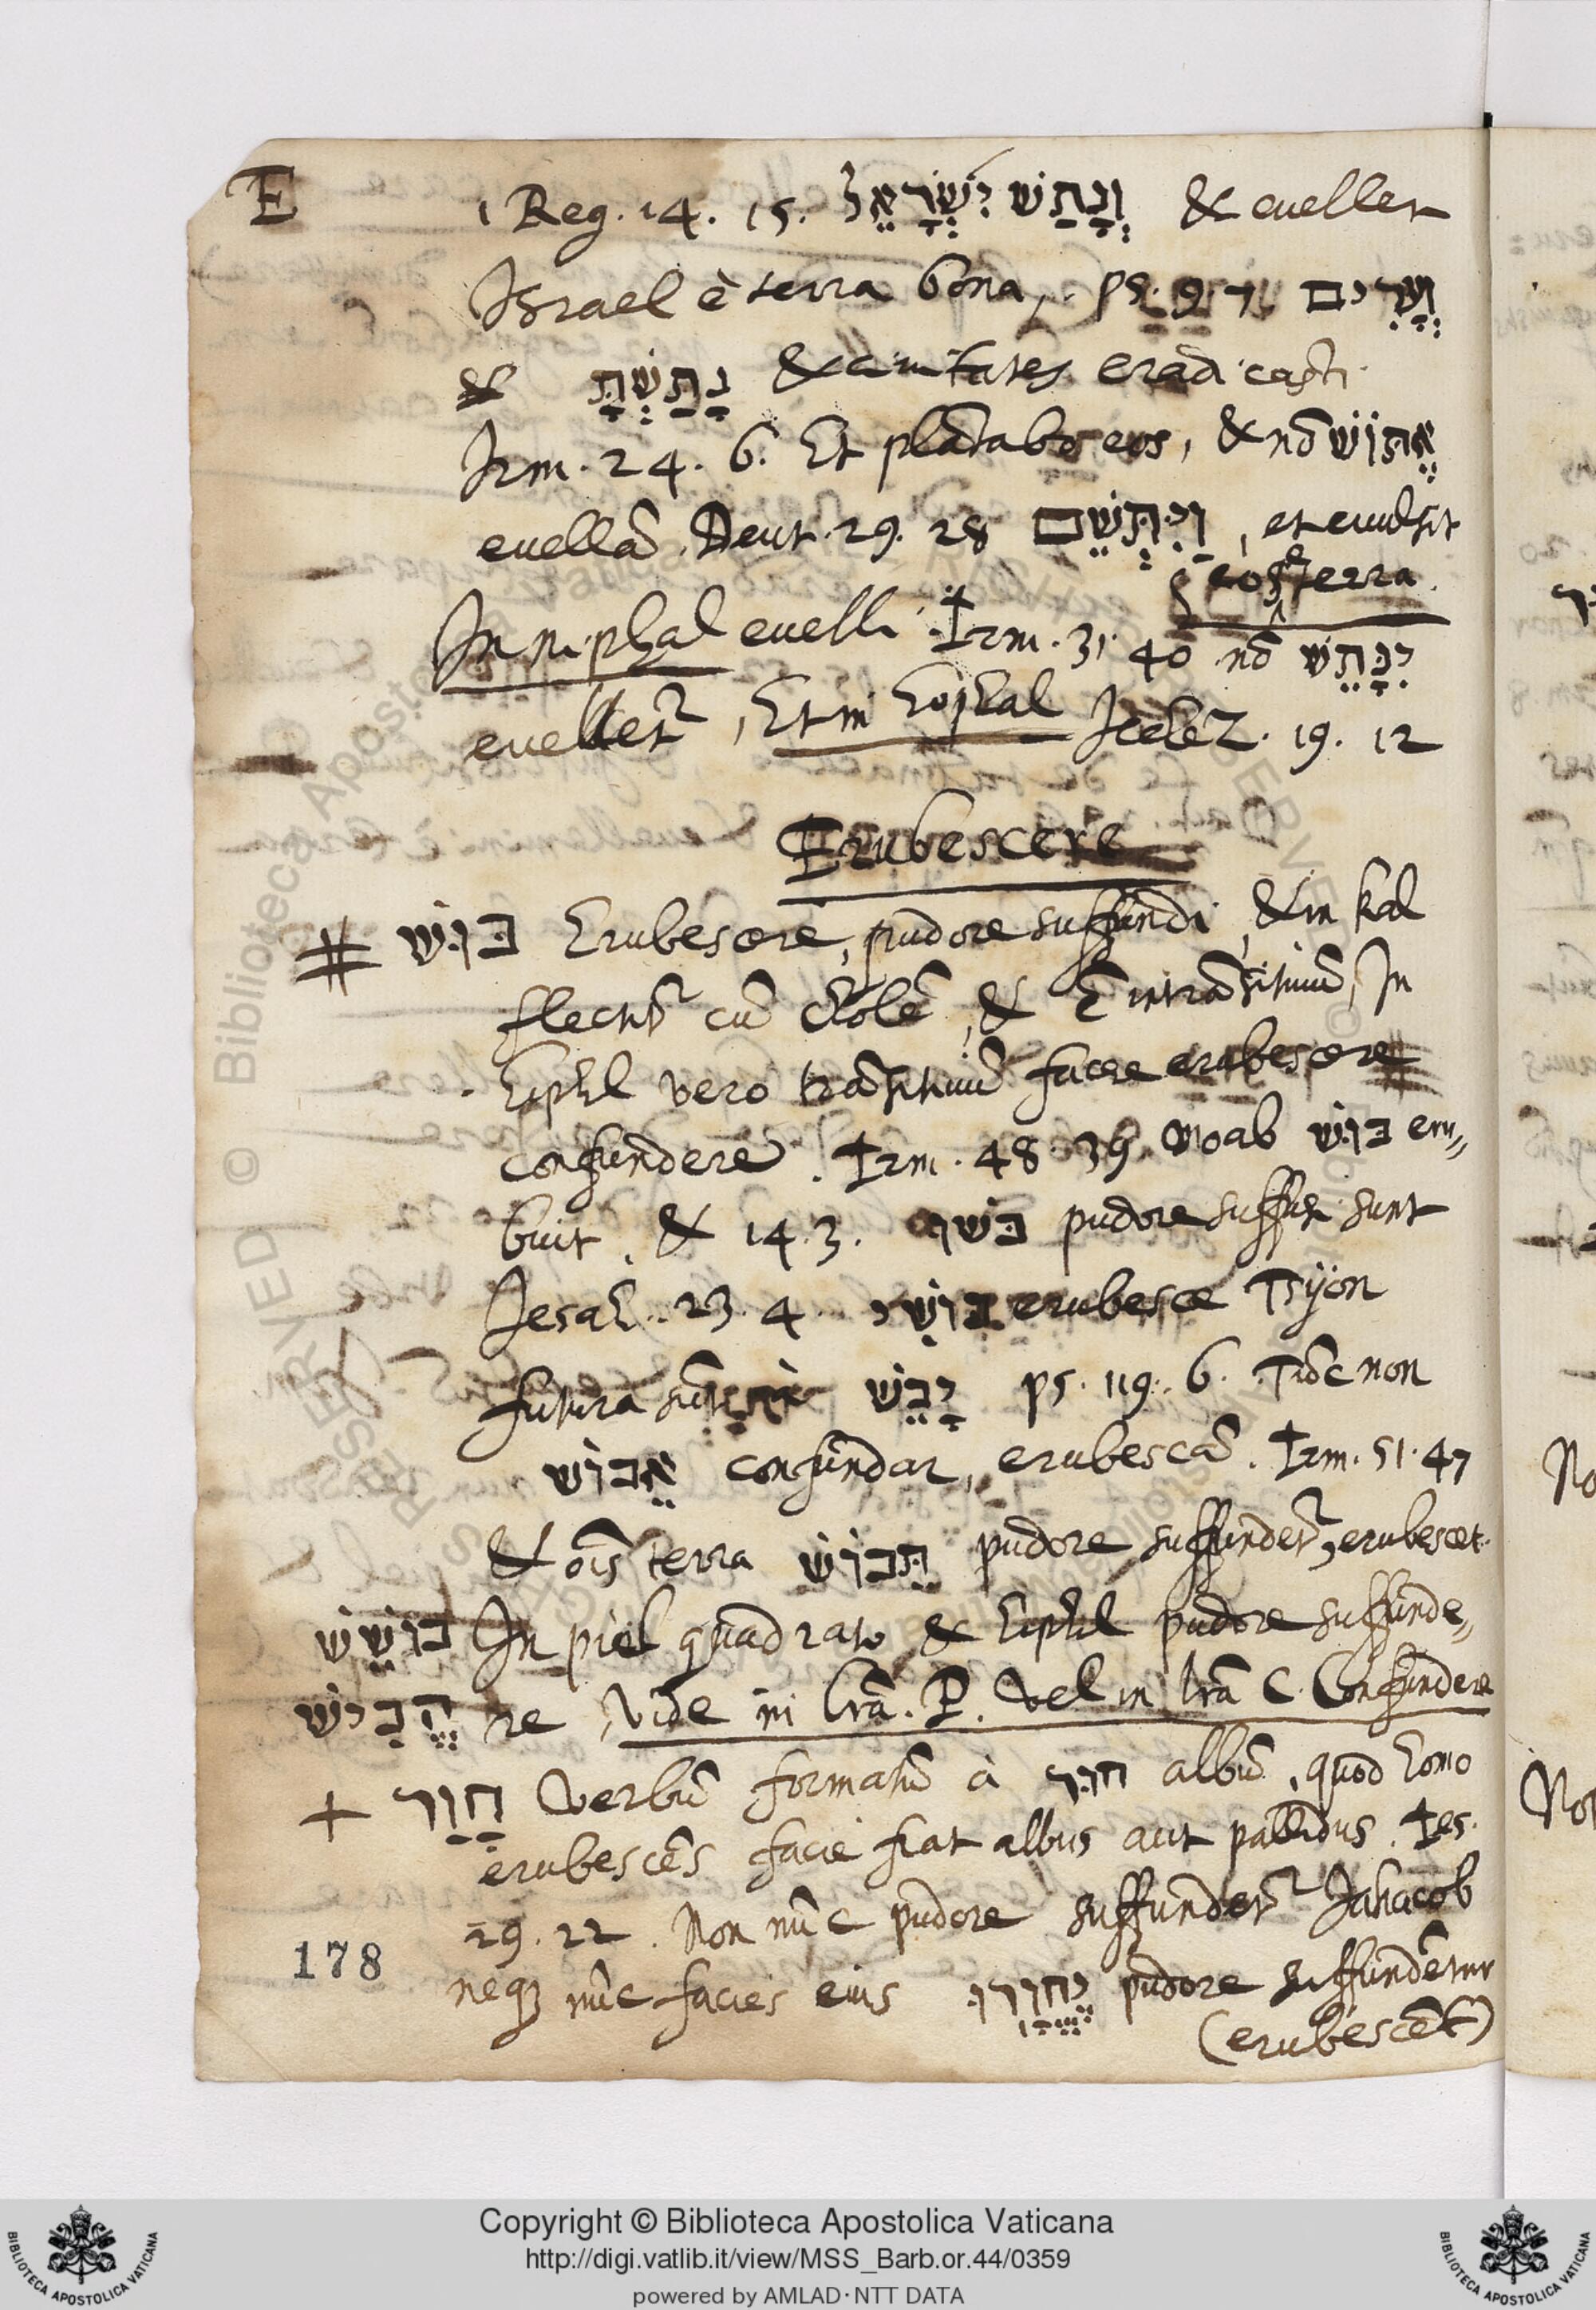 E
1 Reg. 14. 15. וְנָתַשׁ יִשְׂרָאֵל & euellet
Israel è terra bona, ps. 9. 7 וְעָרִים
& נָתַשְׁתָּ & ciuitates eradicasti
Irm. 24. 6. Et plātabo eos, & nō אֶתּוֹשׁ
euellā. Deut. 29. 28 וַיִּתְּשֵׁם, et euulsit
eos è terra.
In niphal euelli Irm. 31. 40 nō יִנָּתֵשׁ
euelletr, Et in hophal Iehez. 19. 12
Erubescere
# בּוּשׁ Erubescere, pudore suffundi, & in kal
flectitr cū cholē, & ē intrāsitiuū, In
hiphil vero trāsitiuū facere erubescere
confundere. Irm. 48. 39. Moab בּוֹשׁ eru„
buit, & 14. 3. בֹּשׁוּ pudore suffusi sunt
Iesah. 23. 4 בּוֹשִׁי erubesce Tsijon
futura sūt יֵבֹשׁ ps. 119. 6. Tūc non
אֵבוֹשׁ confundar, erubescā. Irm. 51. 47
& oīs terra תֵּבוֹשׁ pudore suffundetr, erubescet.
בּוֹשֵׁשׁ In piel quadrato & hiphil pudore suffunde„
הֵבִישׁ re, Vide in lrā. P. vel in lrā C. Confundere
+ חָוַר Verbū formatū à חוּר albū, quod homo
erubescēs facie fiat albus aut pallidus. Ies.
29. 22. Non nūc pudore suffundetr Iahacob
neq3 nūc facies eius יֶחֱוָרוּ pudore suffundētur
(erubescēt)
178
Copyright © Biblioteca Apostolica Vaticana
http://digi.vatlib.it/view/MSS_Barb.or.44/0359
powered by AMLAD·NTT DATA